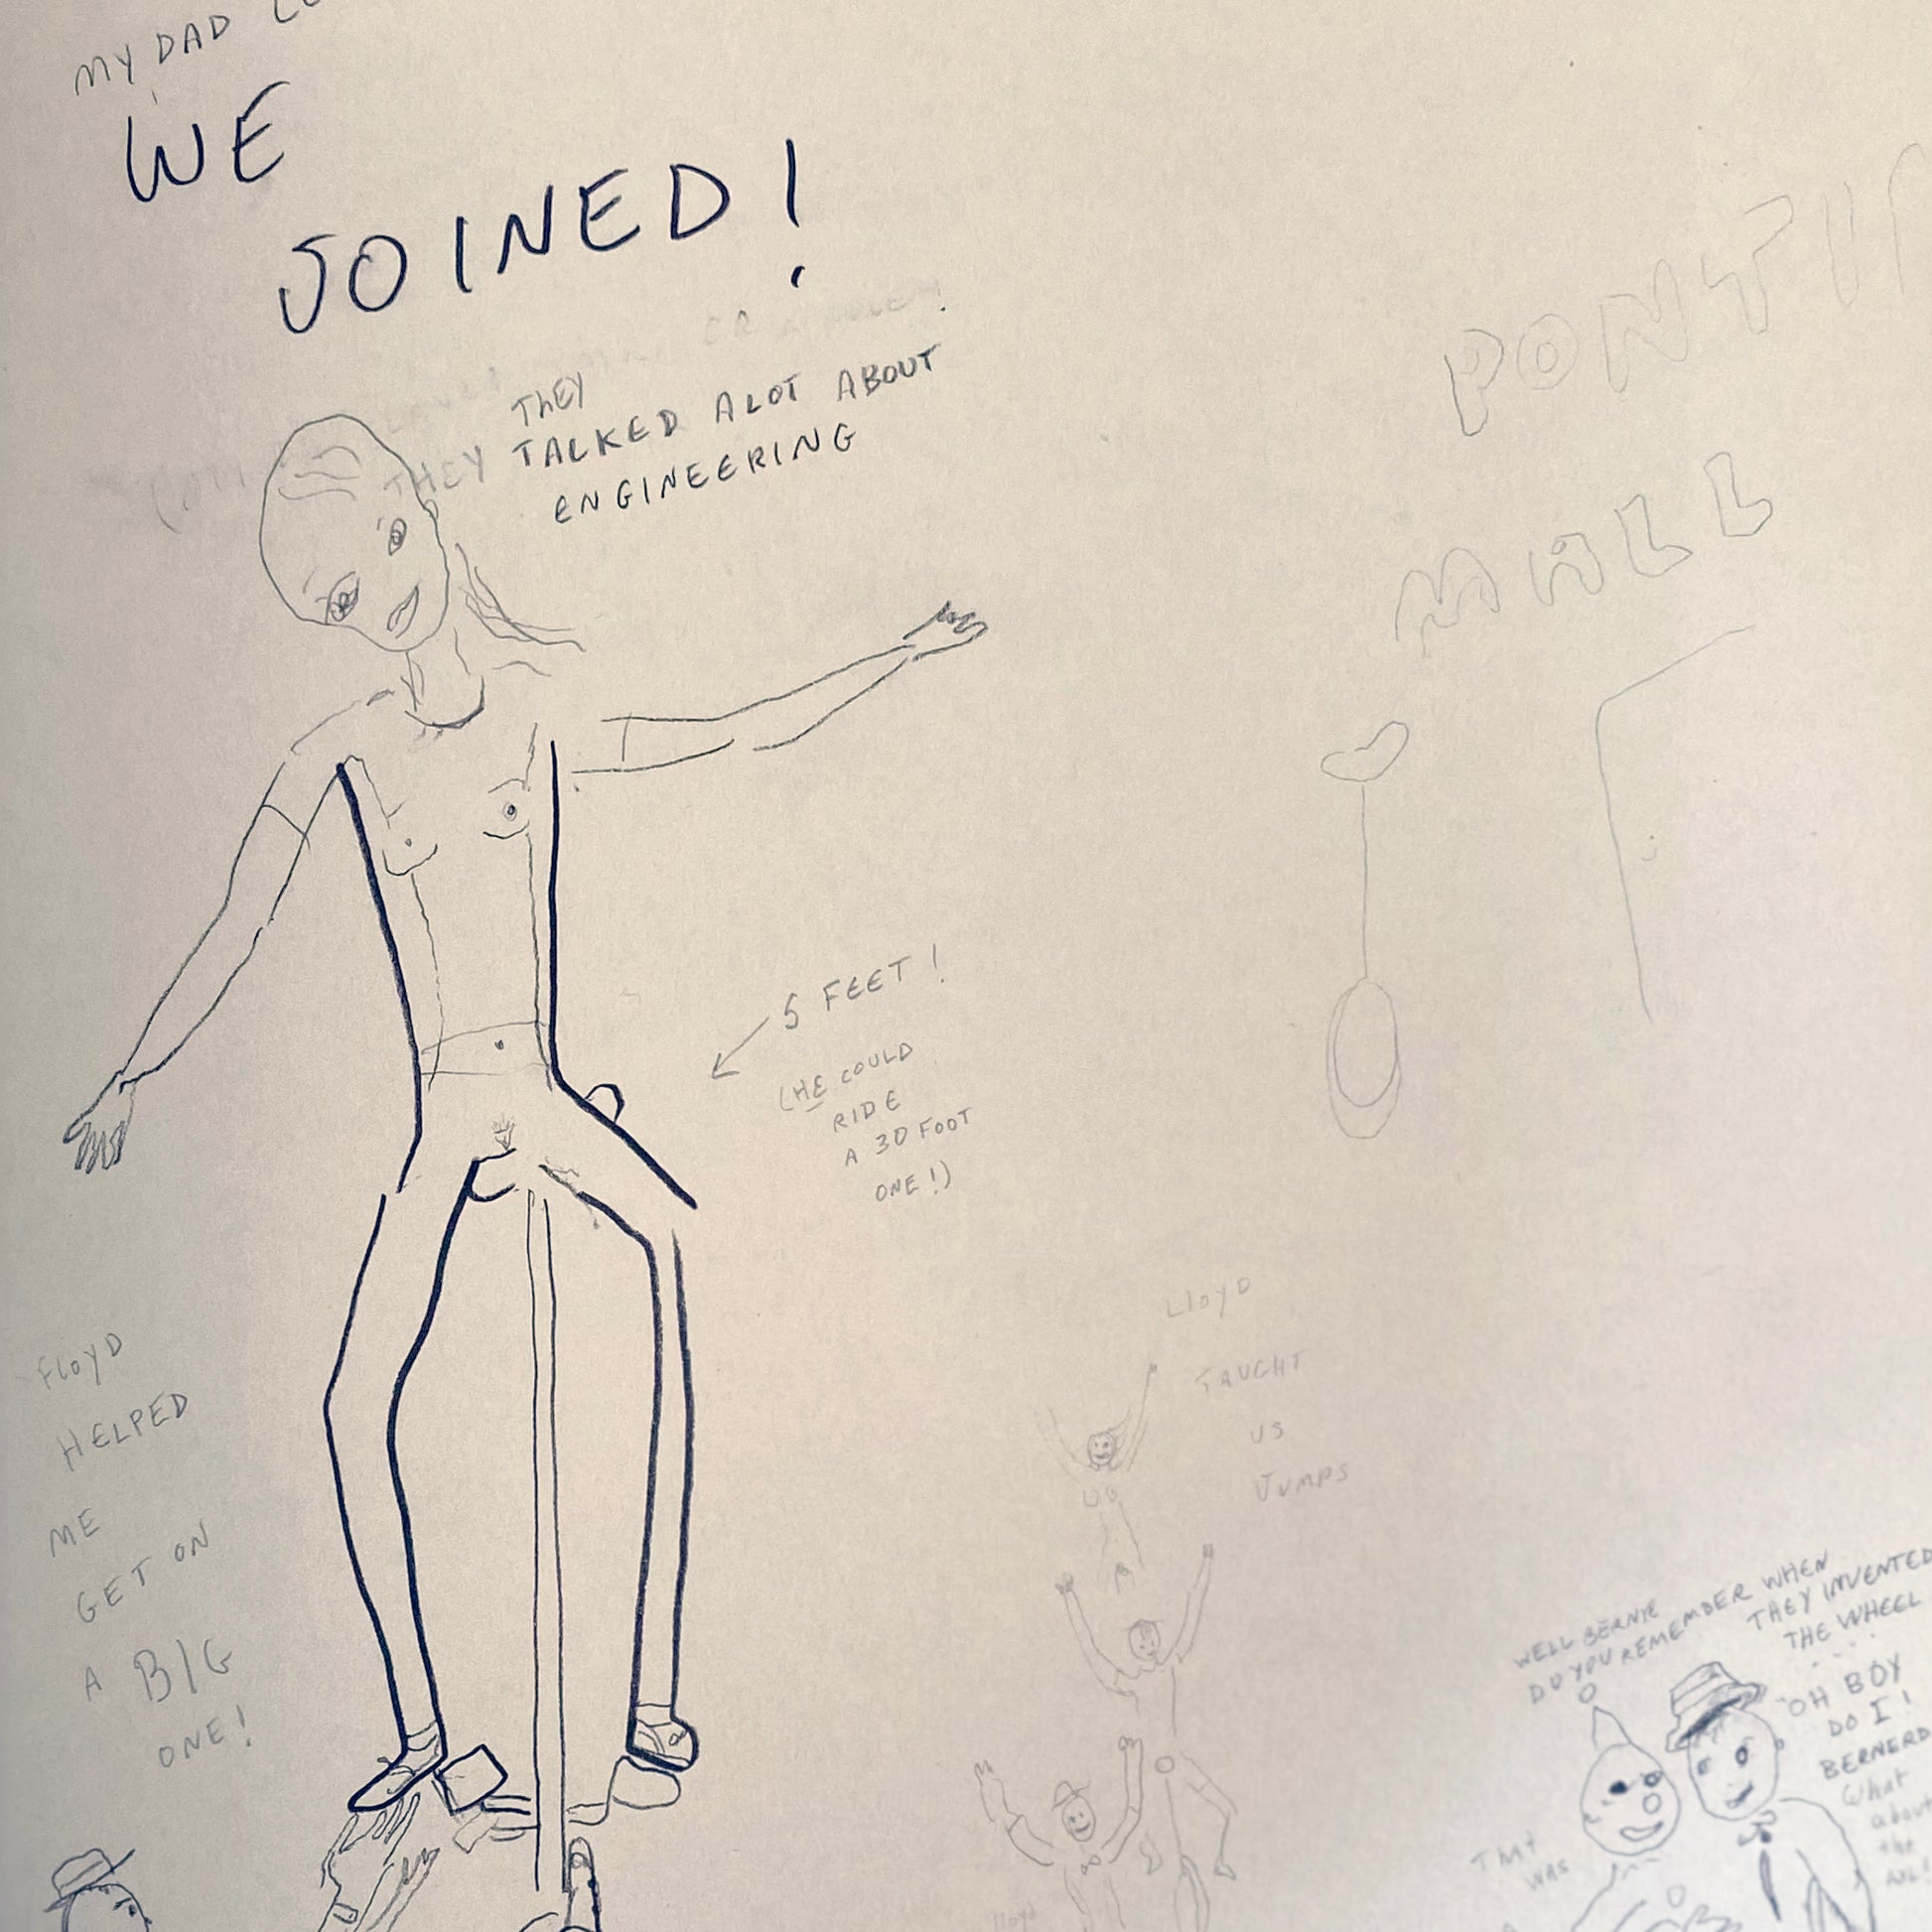 MY DAD
WE
JOINED!
THEY
THEY TALKED ALOT ABOUT
ENGINEERING
PONTI
MALL
5 FEET!
(HE COULD
RIDE
A 30 FOOT
ONE!)
FLOYD
HELPED
ME
GET ON
A BIG
ONE!
LLOYD
TAUGHT
US
JUMPS
WELL BERNIE
DO YOU REMEMBER WHEN
THEY INVENTED
THE WHEEL
...
OH BOY
DO I!
BERNERD
What
about
the
THAT
WAS